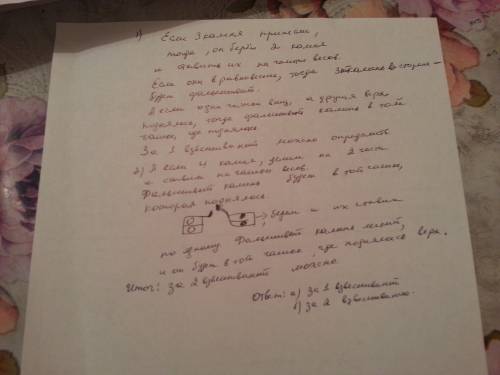 1) Если 3 камня
тогда, он берёт 2 камня
и ставит их на чаши весов.
Если они в равновесие, тогда
будет фальшивый.
А если одна чаша вниз, а другая верх
поднялась, тогда фальшивый камень в той
чашы, где поднялась.
За 1 взвешивания можно определить
б) А если 4 камня, делим на 2 части
и ставим на чашы весов.
Фальшивый камень будет в той чашы,
которая поднялась.
берем и их ставим
по одному. Фальшивый камень легкий,
и он будет в той чашы, где поднялась верх.
Итог: за 2 взвешивания можно
Ответ: а) За 1 взвешивания
б) За 2 взвешивания.